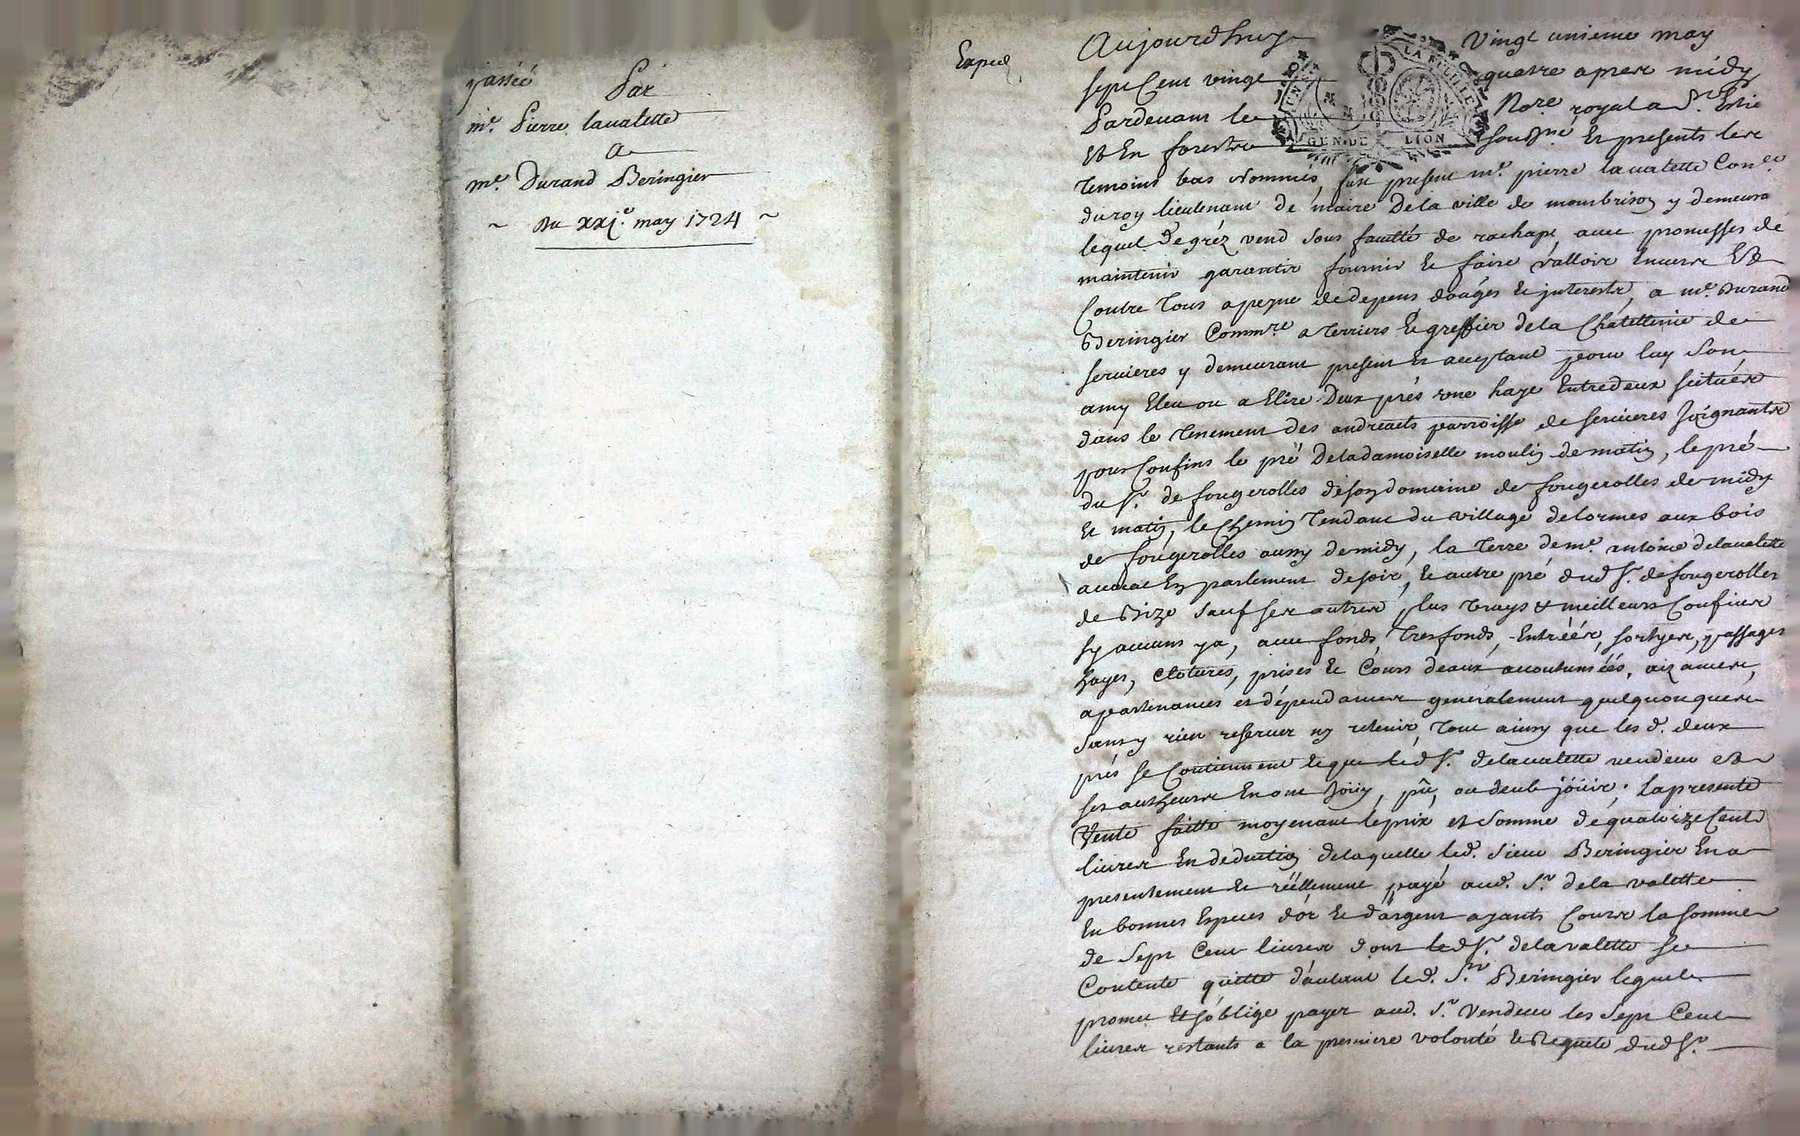 passée Par
mr. Pierre lavalette
a
me. Durand Beringier
~ du xxje. may 1724 ~
Exped
Aujourdhuy Vingt unieme may
sept Cent vingt quatre apres midy
Pardevant le Nore. royal a St.
Et En forestz sousne. Et presents les
temoins bas nommés, fut present mr. pierre lavalette Coner.
du roy lieutenant de maire de la ville de mombrison y demeurant
lequel de gréz vend sous faculté de rachapt, avec promesses de
maintenir garantir fournir et faire valloir envers Et
Contre tous a peyne de depens domages et interests, a me. Durand
Beringier Commre. a terriers Et greffier de la Châtellenie de
servieres y demeurant present et acceptant pour luy Son
amy Eleu ou a Elire Deux prés une haye Entredeux scituées
dans le tenement des andreaets parroisse de servieres Joignants
pour Confins le pré De la damoiselle moulin de matin, le pré
du sr. de fougerolles de son domaine de fougerolles de midy
Et matin, le Chemin tendant du village delormes aux bois
de fougerolles aussy de midy, la terre de me. antoine delavalette
avocat En parlement de soir, et autre pré dud. sr. de fougerolles
de Bize sauf ses autres plus vrays et meilleurs Confins
sy aucuns y a, avec fonds, tresfonds, Entréés, sortyes, passages
hayes, Clotures, prises et Cours deaux accoutumées, aizances,
apartenances et dépendances generalement quelquonques
sans y rien reserver ny retenir, tout ainsy que les d. deux
prés se Contiennent et que led. sr. delavalette vendeur et
ses autheurs En ont Jouy, pû, ou deub joüir; la presente
Vente faitte moyenant le prix et somme de quatorze Cents
livres En deduction de laquelle led. sieur Beringier En a
presentement et réellement payé aud. sr. de la valette
En bonnes Especes dór et dárgent ayants Cours la somme
de sept Cent livres dont led. sr. delavalette se
Contente quitte dautant led. sr. Beringier lequel
promet Et sóblige payer aud. sr. Vendeur les sept Cent
livres restants a la premiere volonté et Requete dud. sr.
UN S.
LA FEUILLE
GEN. DE LION